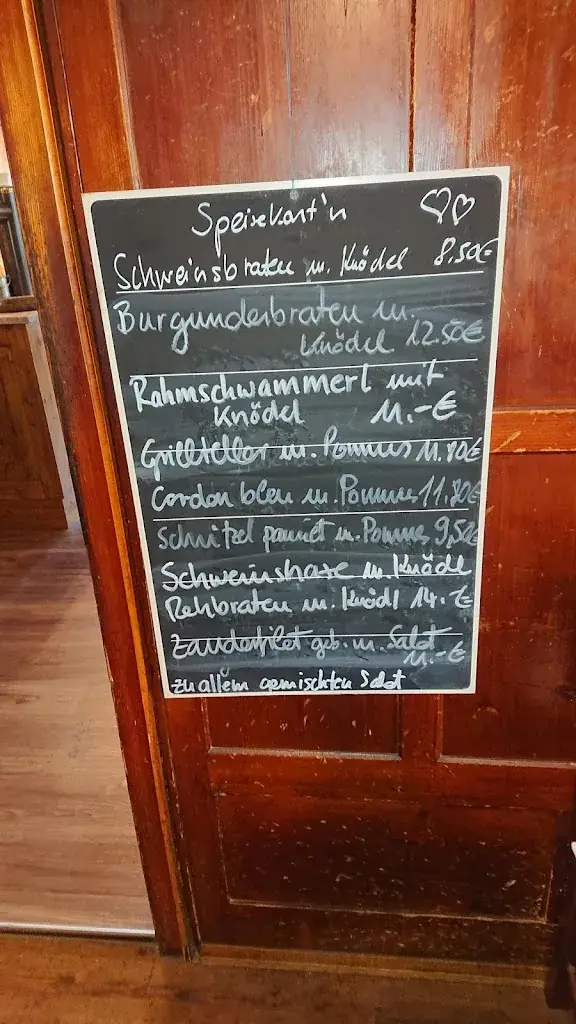 Speisekart'n
Schweinsbraten m. Knödel 8.50€
Burgunderbraten m.
Knödel 12.50€
Rahmschwammerl mit
Knödel 11.-€
Grillteller m. Pommes 11.80€
Cordon bleu m. Pommes 11.80€
Schnitzel paniert m. Pommes 9,50€
Schweinshaxe m. Knödl
Rehbraten m. Knödl 14.-€
Zanderfilet geb. m. Salat
11.-€
zu allem gemischten Salat